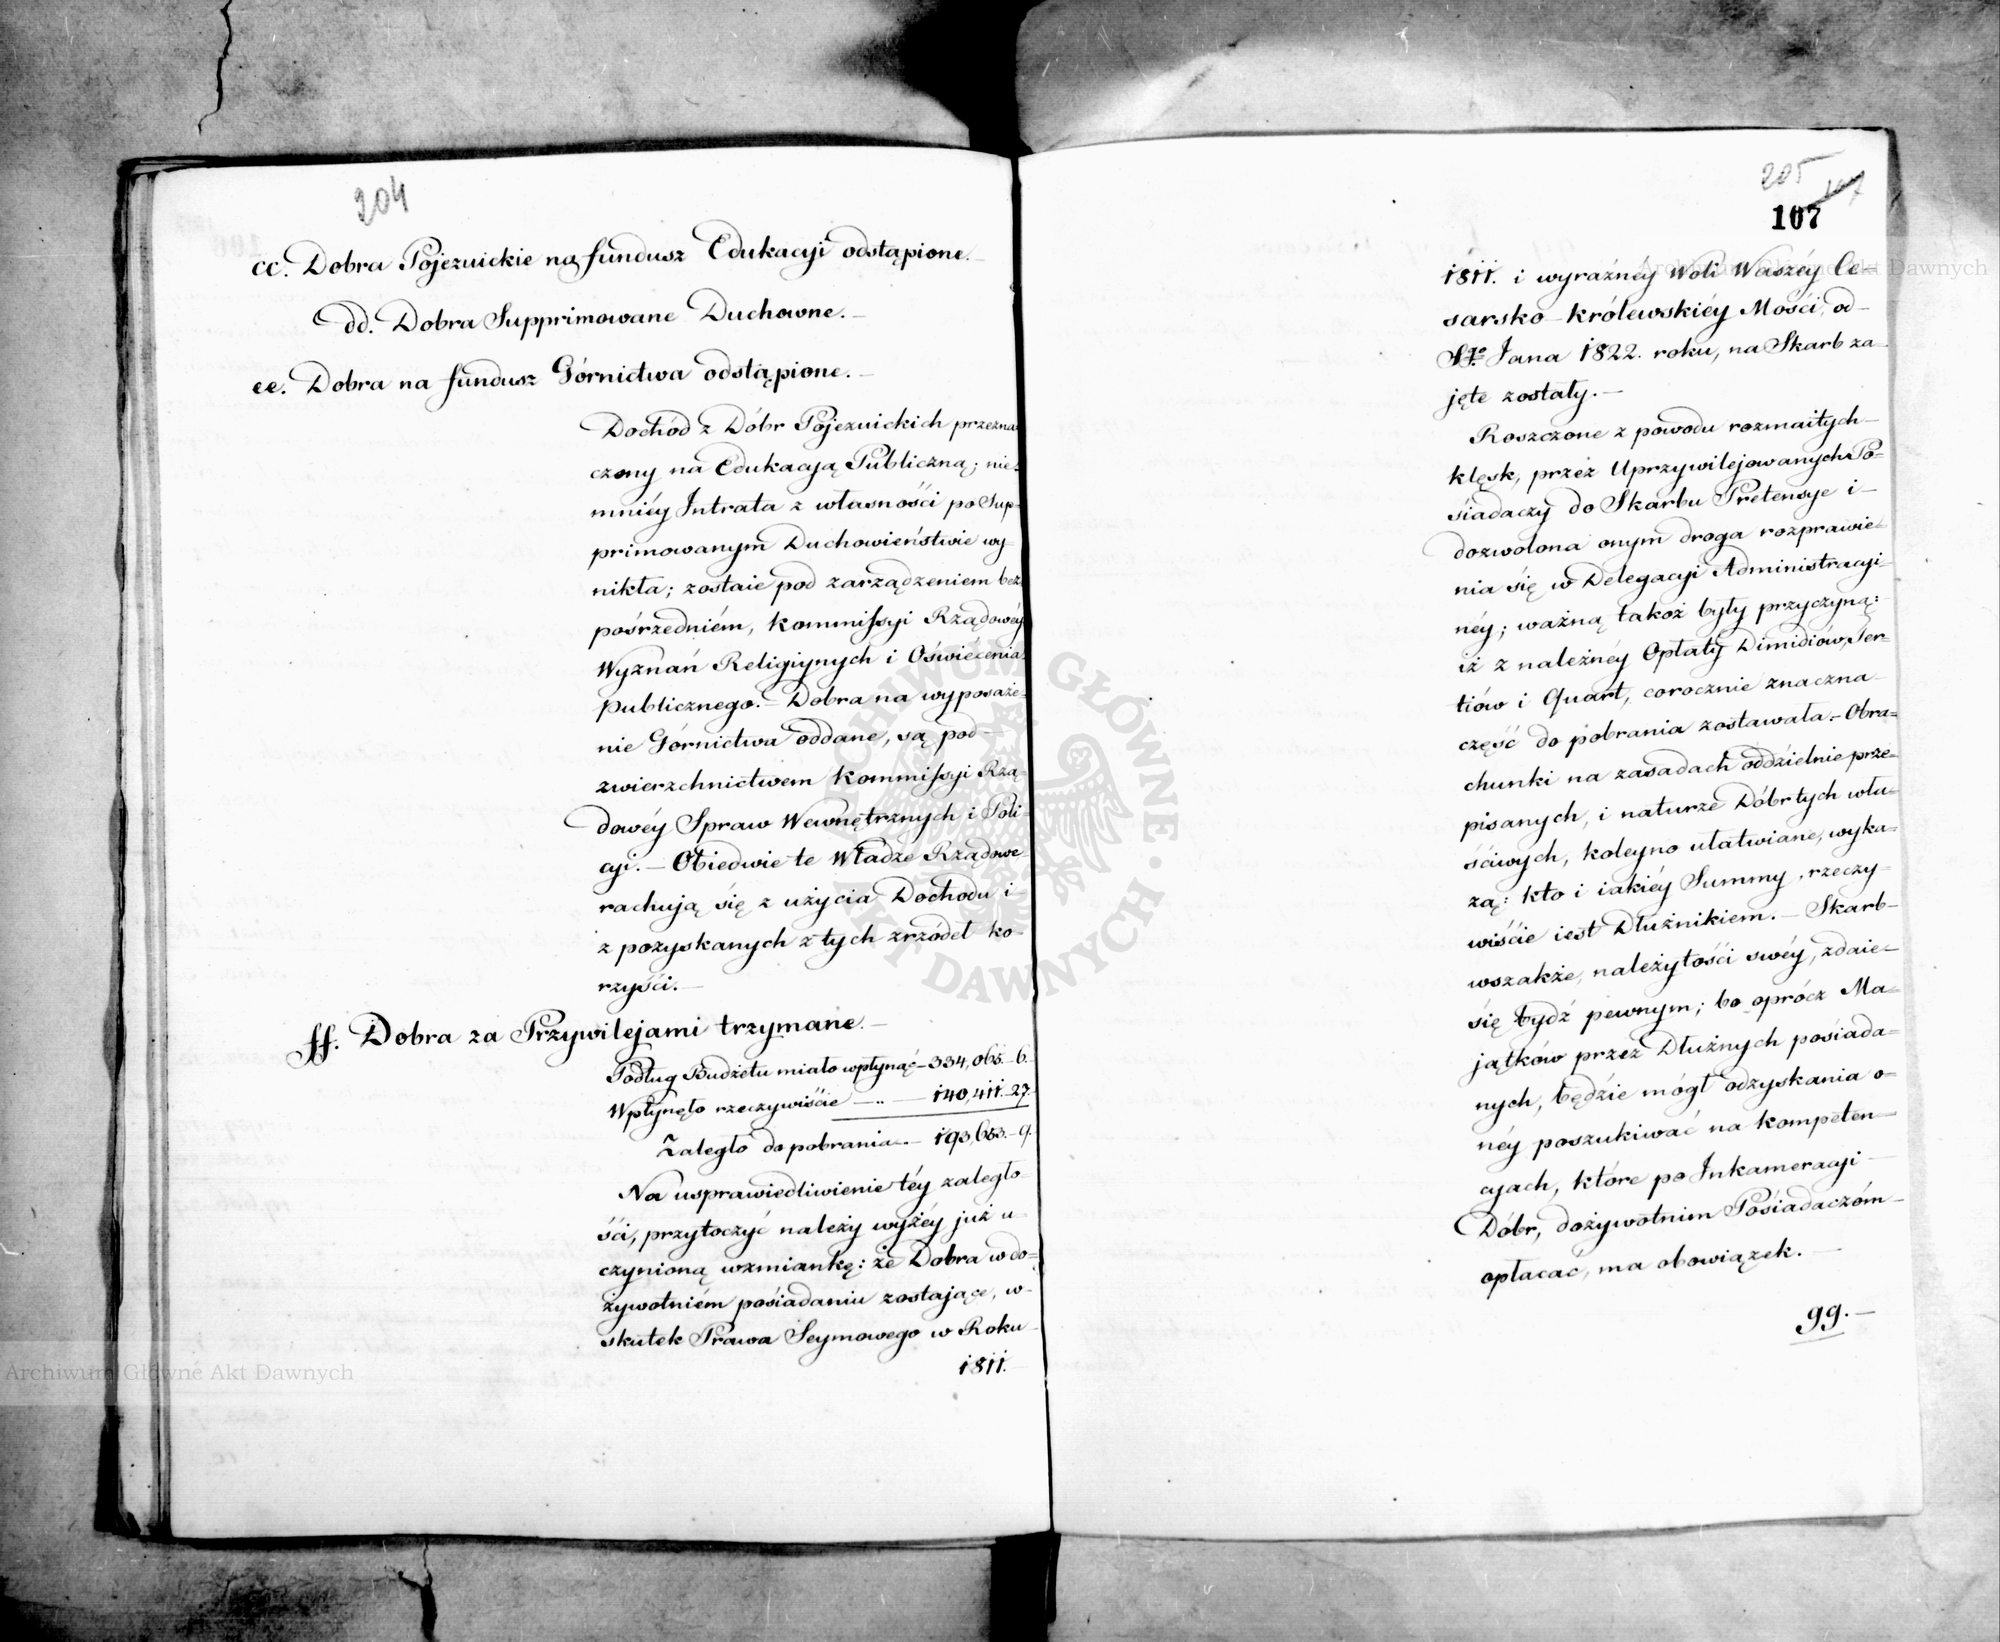 204
cc. Dobra Pojezuickie na fundusz Edukacyi odstąpione. –
dd. Dobra Supprimowane Duchowne. –
ee. Dobra na fundusz Górnictwa odstąpione. –
Dochód z Dóbr Pojezuickich przezna-
czony na Edukacyą Publiczną; nie-
mniéy Intrata z własności po Sup-
primowanym Duchowieństwie wy-
nikła; zostaie pod zarządzeniem bez-
pośrzedniém, Kommissyi Rządowéy
Wyznań Religiynych i Oświécenia
publicznego. – Dobra na wyposaże-
nie Górnictwa oddane, są pod –
zwierzchnictwem Kommissyi Rzą-
dowéy Spraw Wewnętrznych i Poli-
cyi. – Obiedwie te Władze Rządowe
rachują się z użycia Dochodu i –
z pozyskanych z tych zrzódeł ko-
rzyści. –
ff. Dobra za Przywilejami trzymane. –
Podług Budżetu miało wpłynąć – 334,065. – 6.
Wpłynęło rzeczywiście – „ – 140,411. – 27.
Zaległo do pobrania. – 193,653. – 9.
Na usprawiedliwienie téy zaległo-
ści, przytoczyć należy wyżéy już u-
czynioną wzmiankę: że Dobra w do-
żywotniém pośiadaniu zostające, w-
skutek Prawa Seymowego w Roku –
1811. –
205
107
107
1811. i wyraźnéy Woli Waszéy Ce-
sarsko – królewskiéy Mości, od –
Sgo Jana 1822. roku, na Skarb za-
jęte zostały. –
Roszczone z powodu rozmaitych –
klęsk, przez Uprzywilejowanych Po-
śiadaczy do Skarbu Pretensye i –
dozwolona onym droga rozprawie-
nia się w Delegacyi Administracyi-
néy; ważną takoż były przyczyną:
iż z należnéy Opłaty Dimidiów, Ter-
tiów i Quart, corocznie znaczna –
część do pobrania zostawała. – Obra-
chunki na zasadach oddzielnie prze-
pisanych, i naturze Dóbr tych wła-
ściwych, koleyno ułatwiane, wyka-
żą: kto i iakiéy Summy, rzeczy-
wiście iest Dłużnikiem. – Skarb –
wszakże, należytości swéy, zdaie –
się bydź pewnym; bo oprócz Ma-
jątków przez Dłużnych pośiada-
nych, będzie mógł odzyskania o-
néy poszukiwać na kompeten-
cyach, które po Inkameracyi –
Dóbr, dożywotnim Pośiadaczóm –
opłacać, ma obowiązek. –
gg. –
Archiwum Główne Akt Dawnych
Archiwum Główne Akt Dawnych
ARCHIWUM GŁÓWNE · AKT DAWNYCH